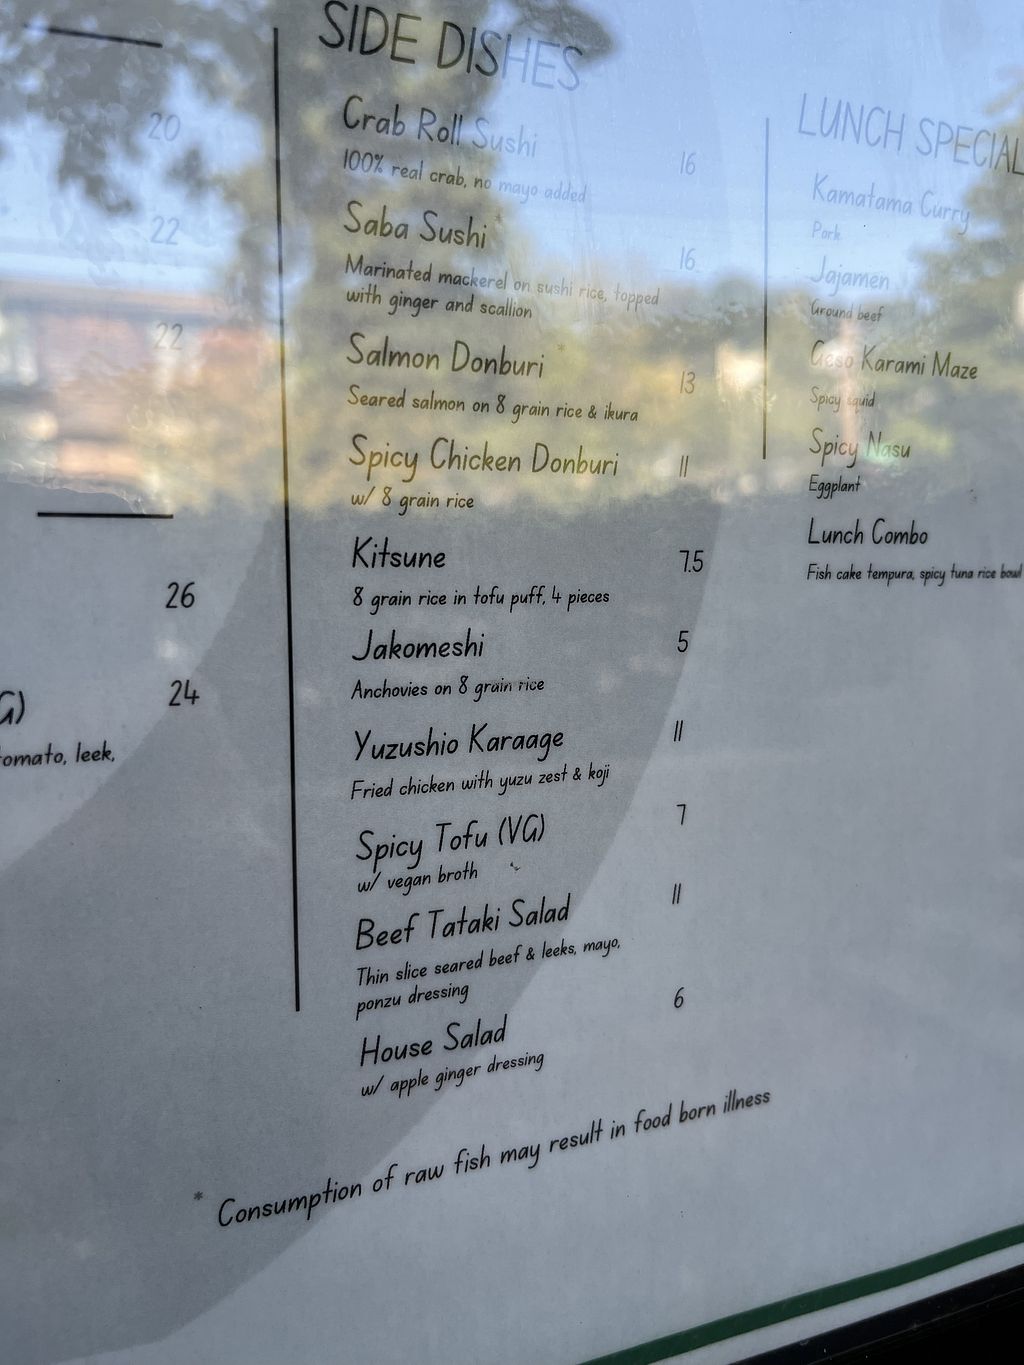 20
22
22
26
24
G)
tomato, leek,
SIDE DISHES
Crab Roll Sushi 16
100% real crab, no mayo added
Saba Sushi * 16
Marinated mackerel on sushi rice, topped
with ginger and scallion
Salmon Donburi * 13
Seared salmon on 8 grain rice & ikura
Spicy Chicken Donburi 11
w/ 8 grain rice
Kitsune 7.5
8 grain rice in tofu puff, 4 pieces
Jakomeshi 5
Anchovies on 8 grain rice
Yuzushio Karaage 11
Fried chicken with yuzu zest & koji
Spicy Tofu (VG) 7
w/ vegan broth
Beef Tataki Salad 11
Thin slice seared beef & leeks, mayo,
ponzu dressing
House Salad 6
w/ apple ginger dressing
LUNCH SPECIAL
Kamatama Curry
Pork
Jajamen
Ground beef
Geso Karami Maze
Spicy squid
Spicy Nasu
Eggplant
Lunch Combo
Fish cake tempura, spicy tuna rice bowl
* Consumption of raw fish may result in food born illness